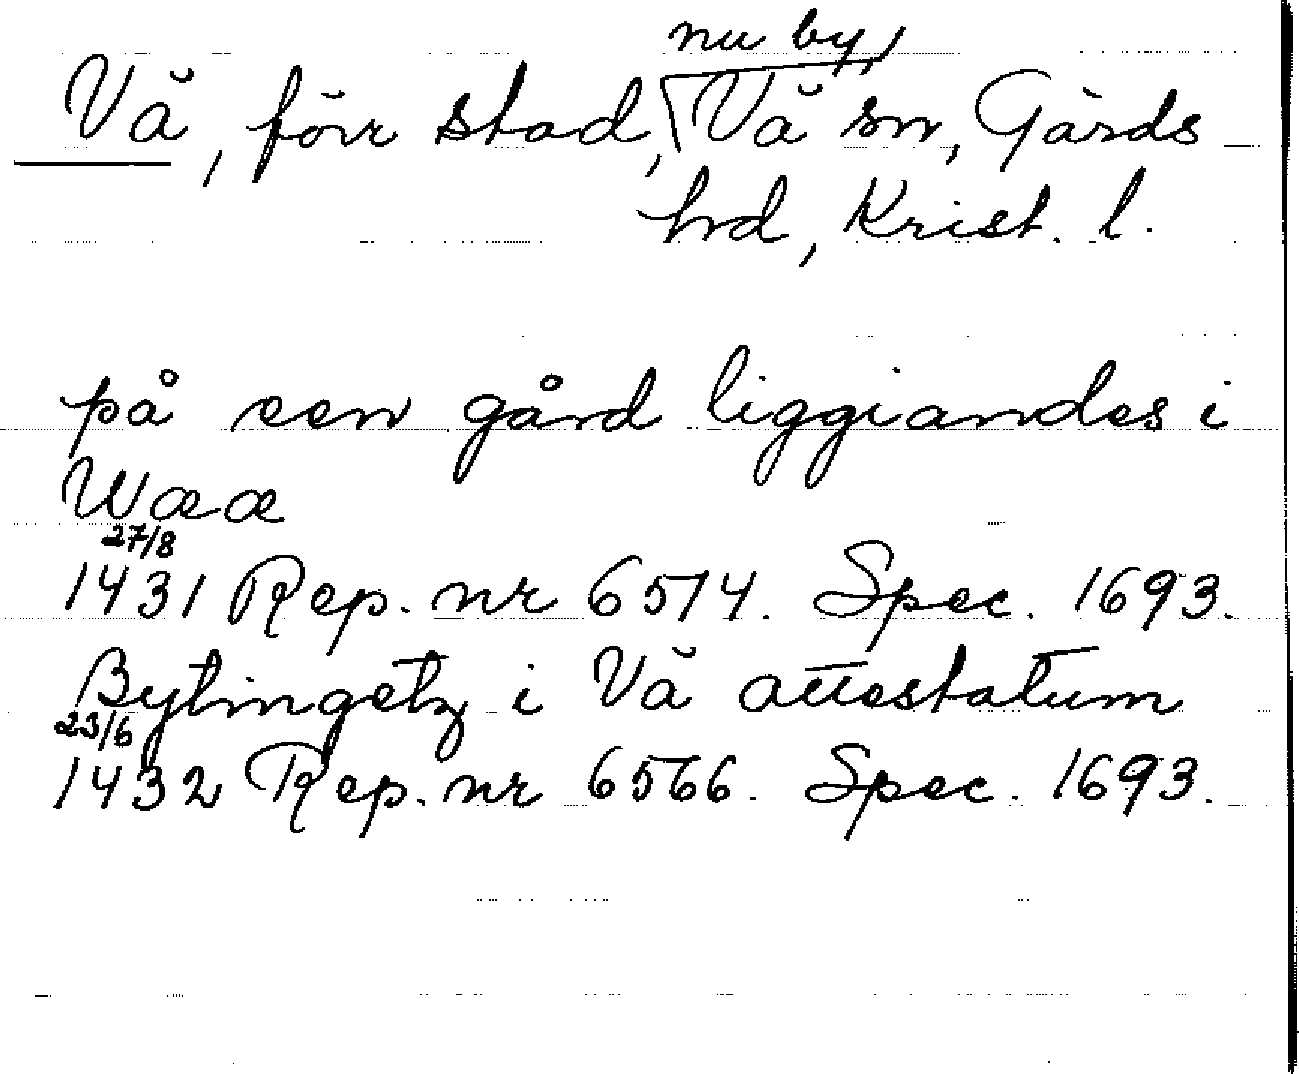 nu by,
Vä, förr stad, Vä sn, Gärds
hd, Krist. l.
på een gård liggiandes i
Wææ
27/8
1431 Rep. nr 6514. Spec. 1693.
Bytingetz i Vä attestatum
23/6
1432 Rep. nr 6566. Spec. 1693.